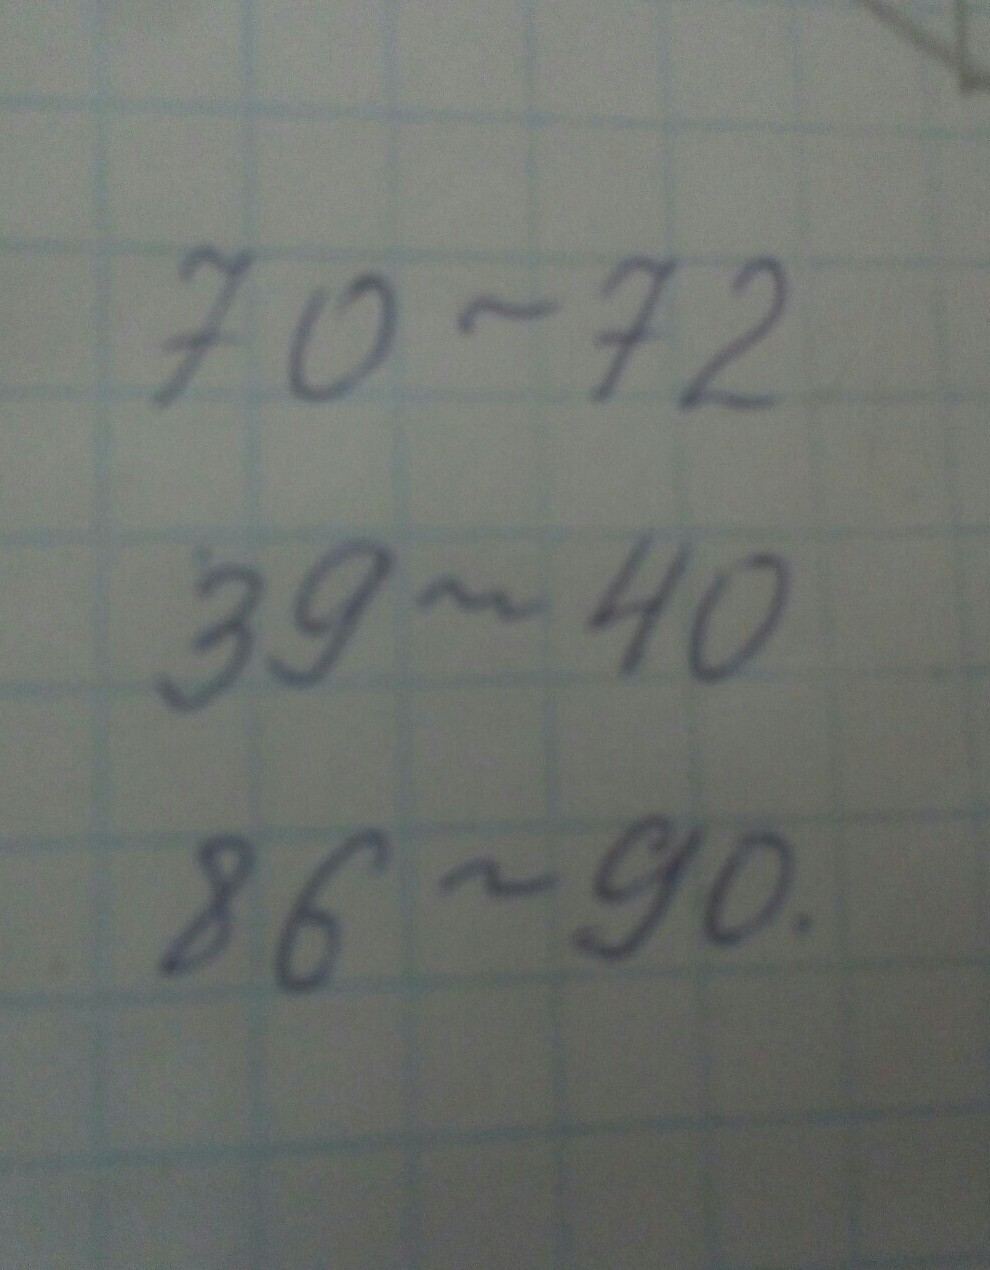 70 ~ 72
39 ~ 40
86 ~ 90.